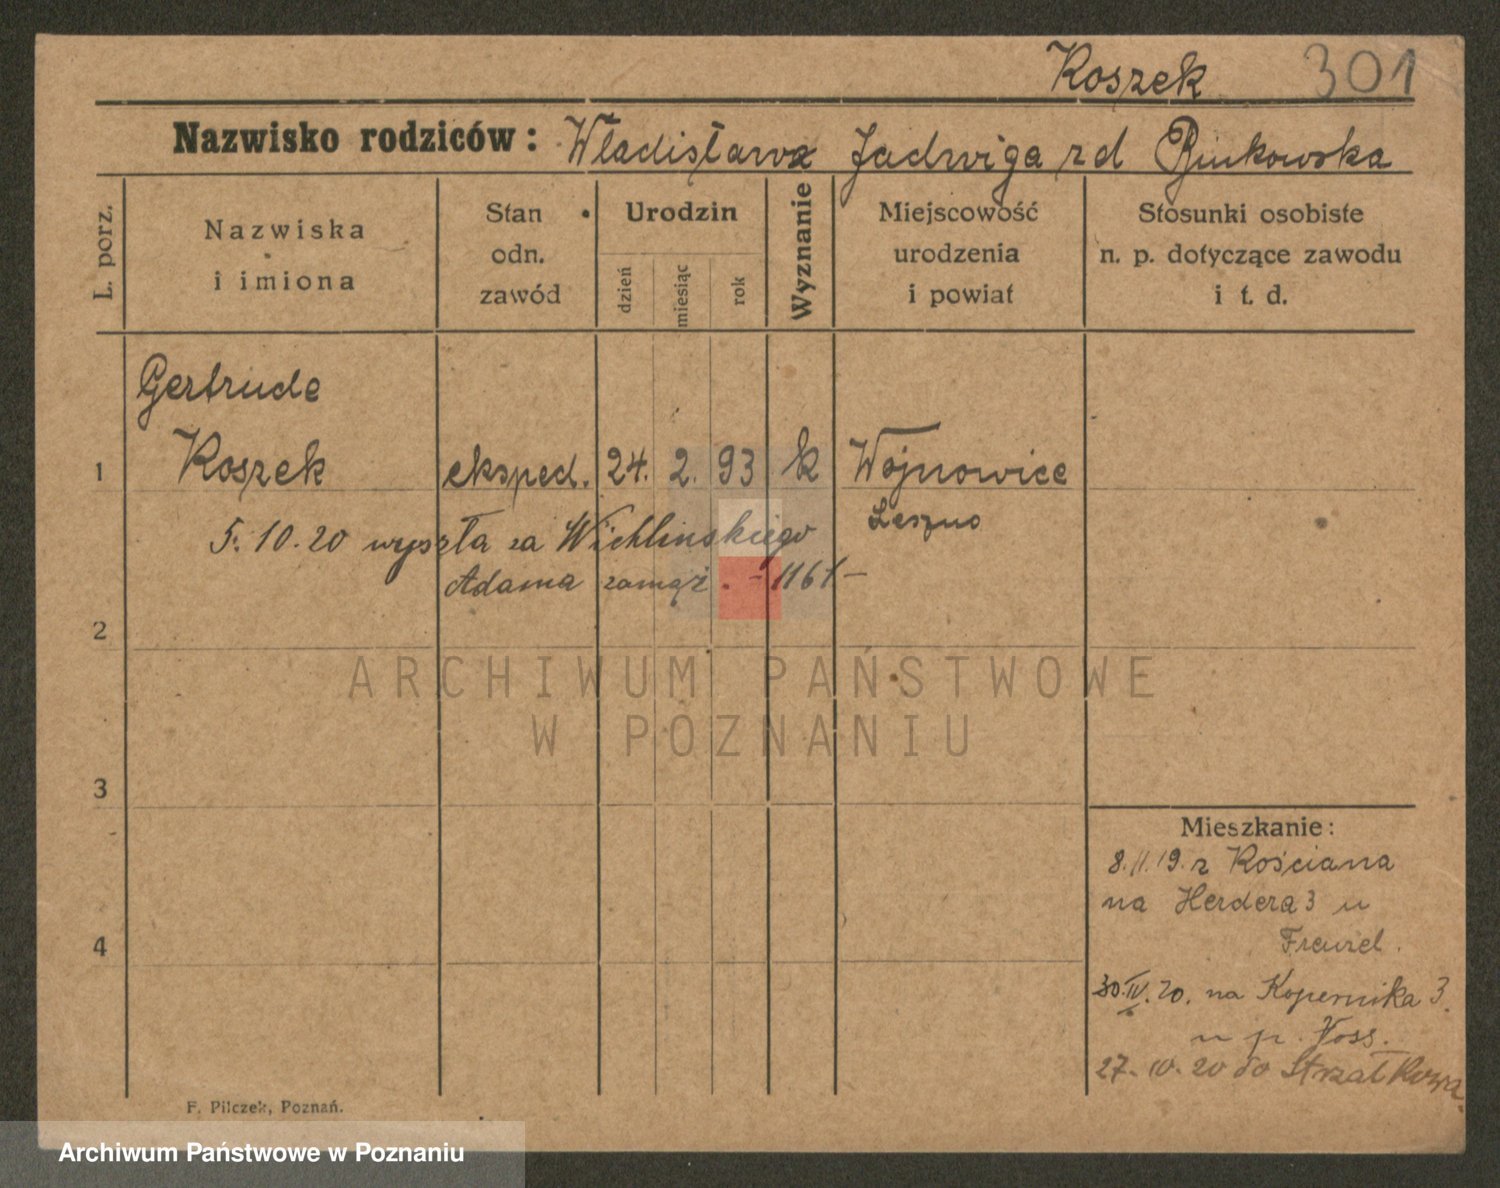 Koszek 301
Nazwisko rodziców: Władisława Jadwiga zd Binkowska
L. porz.
Nazwiska
i imiona
Stan
odn.
zawód
Urodzin
dzień
miesiąc
rok
Wyznanie
Miejscowość
urodzenia
i powiat
Stosunki osobiste
n. p. dotyczące zawodu
i t. d.
Gertrude
1 Koszek eksped. 24. 2. 93 k Wojnowice
Leszno
5. 10. 20 wyszła za Wichlinskiego
Adama zamąż. - 1161 -
2
ARCHIWUM PAŃSTWOWE
W POZNANIU
3
4
Mieszkanie:
8.11.19. z Kościana
na Herdera 3 u
30.IV.20. na Kopernika 3.
u p. Voss.
27. 10. 20 do Strzałkowa.
F. Pilczek, Poznań.
Archiwum Państwowe w Poznaniu